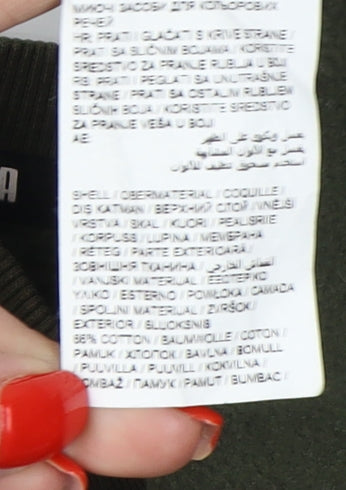 МИЮЧІ ЗАСОБИ ДЛЯ КОЛЬОРОВИХ
РЕЧЕЙ
HR: PRATI / GLAČATI S KRIVE STRANE /
PRATI SA SLIČNIM BOJAMA / KORISTITE
SREDSTVO ZA PRANJE RUBLJA U BOJI
RS: PRATI / PEGLATI SA UNUTRAŠNJE
STRANE / PRATI SA OSTALIM RUBLJEM
SLIČNIH BOJA / KORISTITE SREDSTVO
ZA PRANJE VEŠA U BOJI
AE:
يغسل ويكوى على الظهر
يغسل مع الألوان المشابهة
استخدم مسحوق تنظيف للألوان
SHELL / OBERMATERIAL / COQUILLE /
DIŞ KATMAN / ВЕРХНИЙ СЛОЙ / VNĚJŠÍ
VRSTVA / SKAL / KUORI /
/ KORPUSS / LUPINA / МЕМБРАНА
/ RÉTEG / PARTE EXTERIOARĂ /
ЗОВНІШНЯ ТКАНИНА / الغشائي الخارجي
/ VANJSKI MATERIJAL / ΕΞΩΤΕΡΙΚΟ
ΥΛΙΚΟ / ESTERNO / POWŁOKA / CAMADA
/ SPOLJNI MATERIJAL / ZVRŠOK /
EXTERIOR / SLUOKSNIS
% COTTON / BAUMWOLLE / COTON /
PAMUK / ХЛОПОК / BAVLNA / BOMULL
/ PUUVILLA / PUUVILL / KOKVILNA /
/ ПАМУК / PAMUT / BUMBAC /